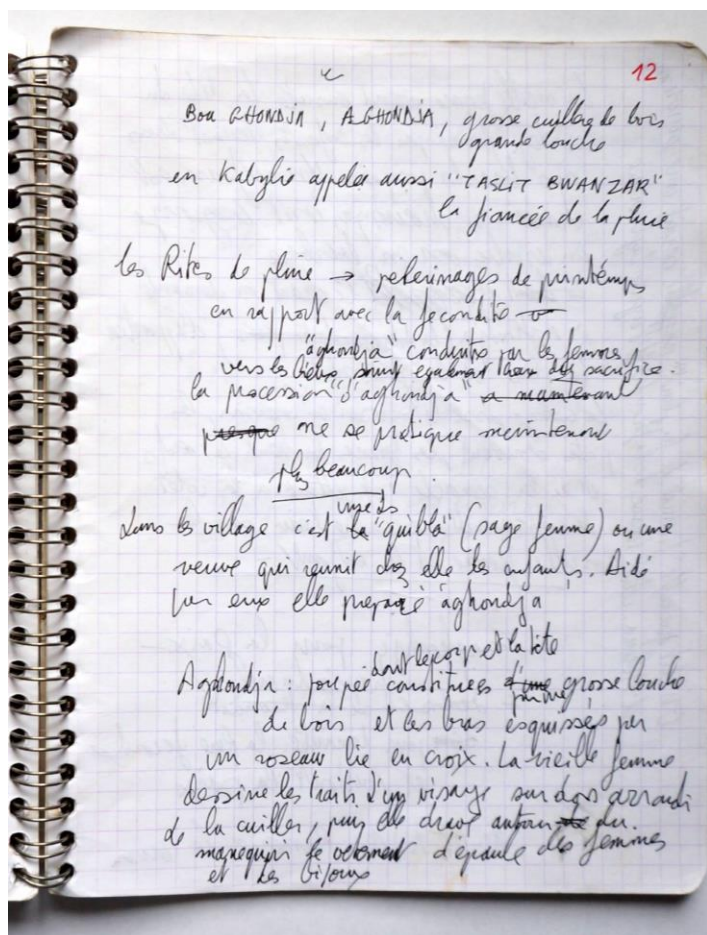 12
Bou GHONDJA, AGHONDJA, grosse cuillère de bois
grande louche
en Kabylie appelée aussi "TASLIT BWANZAR"
la fiancée de la pluie
les Rites de pluie → pelerinages de printemps
en rapport avec la fecondité
"aghondja" conduites par les femmes
vers les lieux saints egalement lieux de sacrifice.
la procession "d'aghondja" a maintenant
presque ne se pratique maintenant
plus beaucoup.
dans les village c'est la "quibla" (sage femme) ou une
veuve qui reunit chez elle les enfants. Aidé
par eux elle prepare aghondja
dont le corp et la tête
Aghondja : poupée constituées d'une grosse louche
de bois et les bras esquissés par
un roseau lie en croix. La vieille femme
dessine les traits d'un visage sur dos arrondi
de la cuiller, puis elle drape autour du
mannequin le vetement d'épaule des femmes
et les bijoux